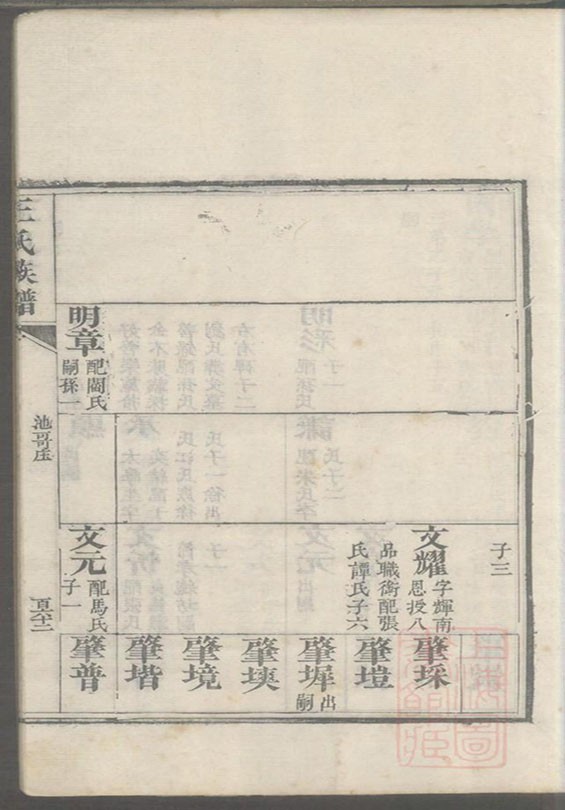 子三
文耀 字輝南
恩授八
品職銜配張
氏譚氏子六
肇埰
肇塏
肇墀 出
嗣
肇埉
肇境
肇堦
明章 配閻氏
嗣孫一
文元 配馬氏
子一
肇普
王氏族譜
池哥庄